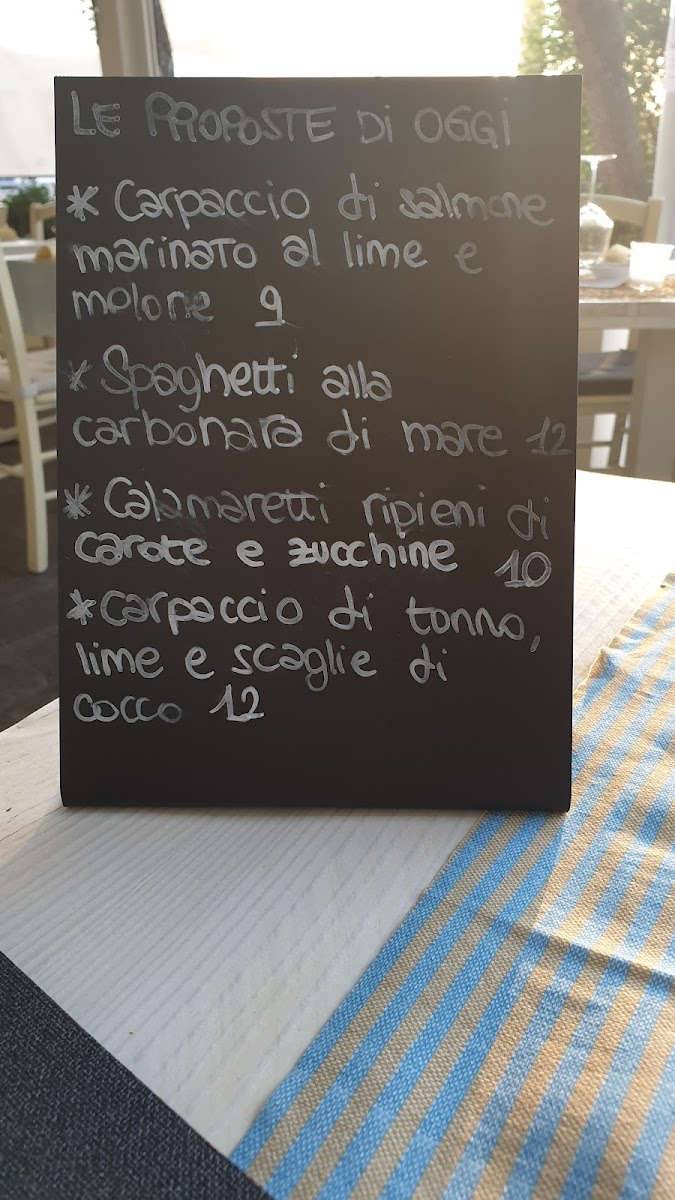 LE PROPOSTE Di OGGi
* Carpaccio di salmone
marinato al lime e
melone 9
* Spaghetti alla
carbonara di mare 12
* Calamaretti ripieni di
carote e zucchine 10
* carpaccio di tonno,
lime e scaglie di
cocco 12